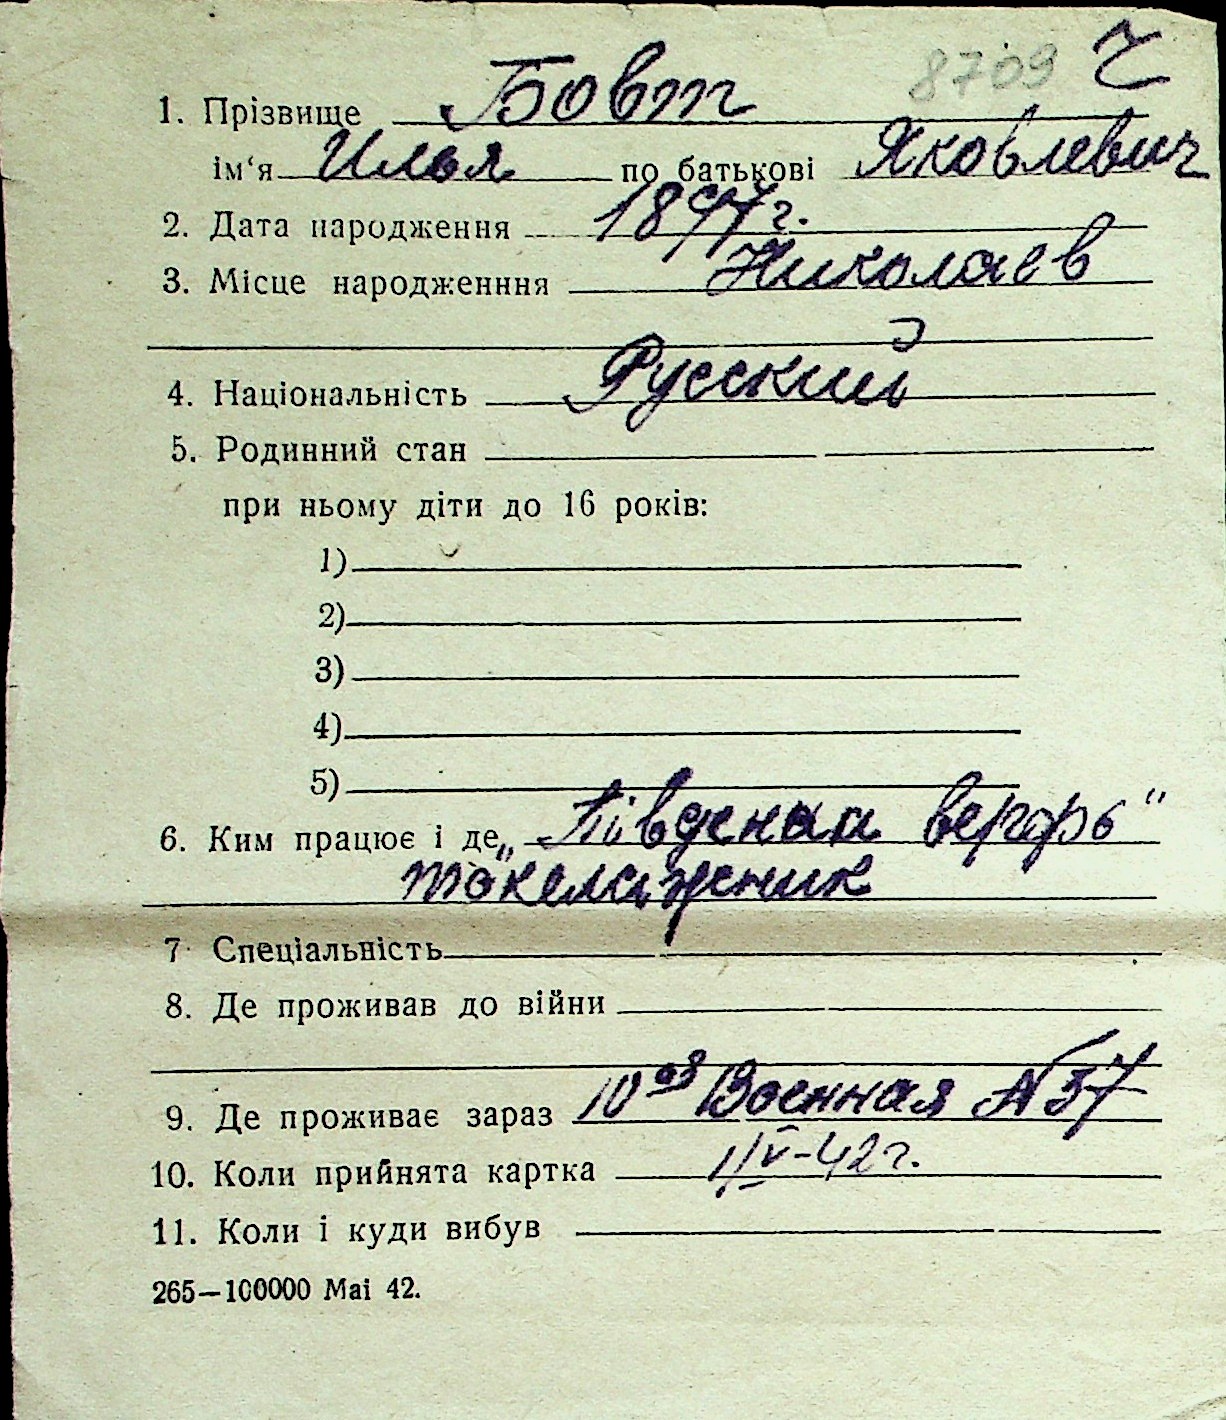 8709 Ч
1. Прізвище Бовт
ім‘я Илья по батькові Яковлевич
2. Дата народження 1897г.
3. Місце народженння Николаев
4. Національність Русский
5. Родинний стан
при ньому діти до 16 років:
1)
2)
3)
4)
5)
6. Ким працює і де „Південая верфь“
такелажник
7 Спеціальність
8. Де проживав до війни
9. Де проживає зараз 10ая Военная №37
10. Коли прийнята картка 1/V-42г.
11. Коли і куди вибув
265—100000 Mai 42.